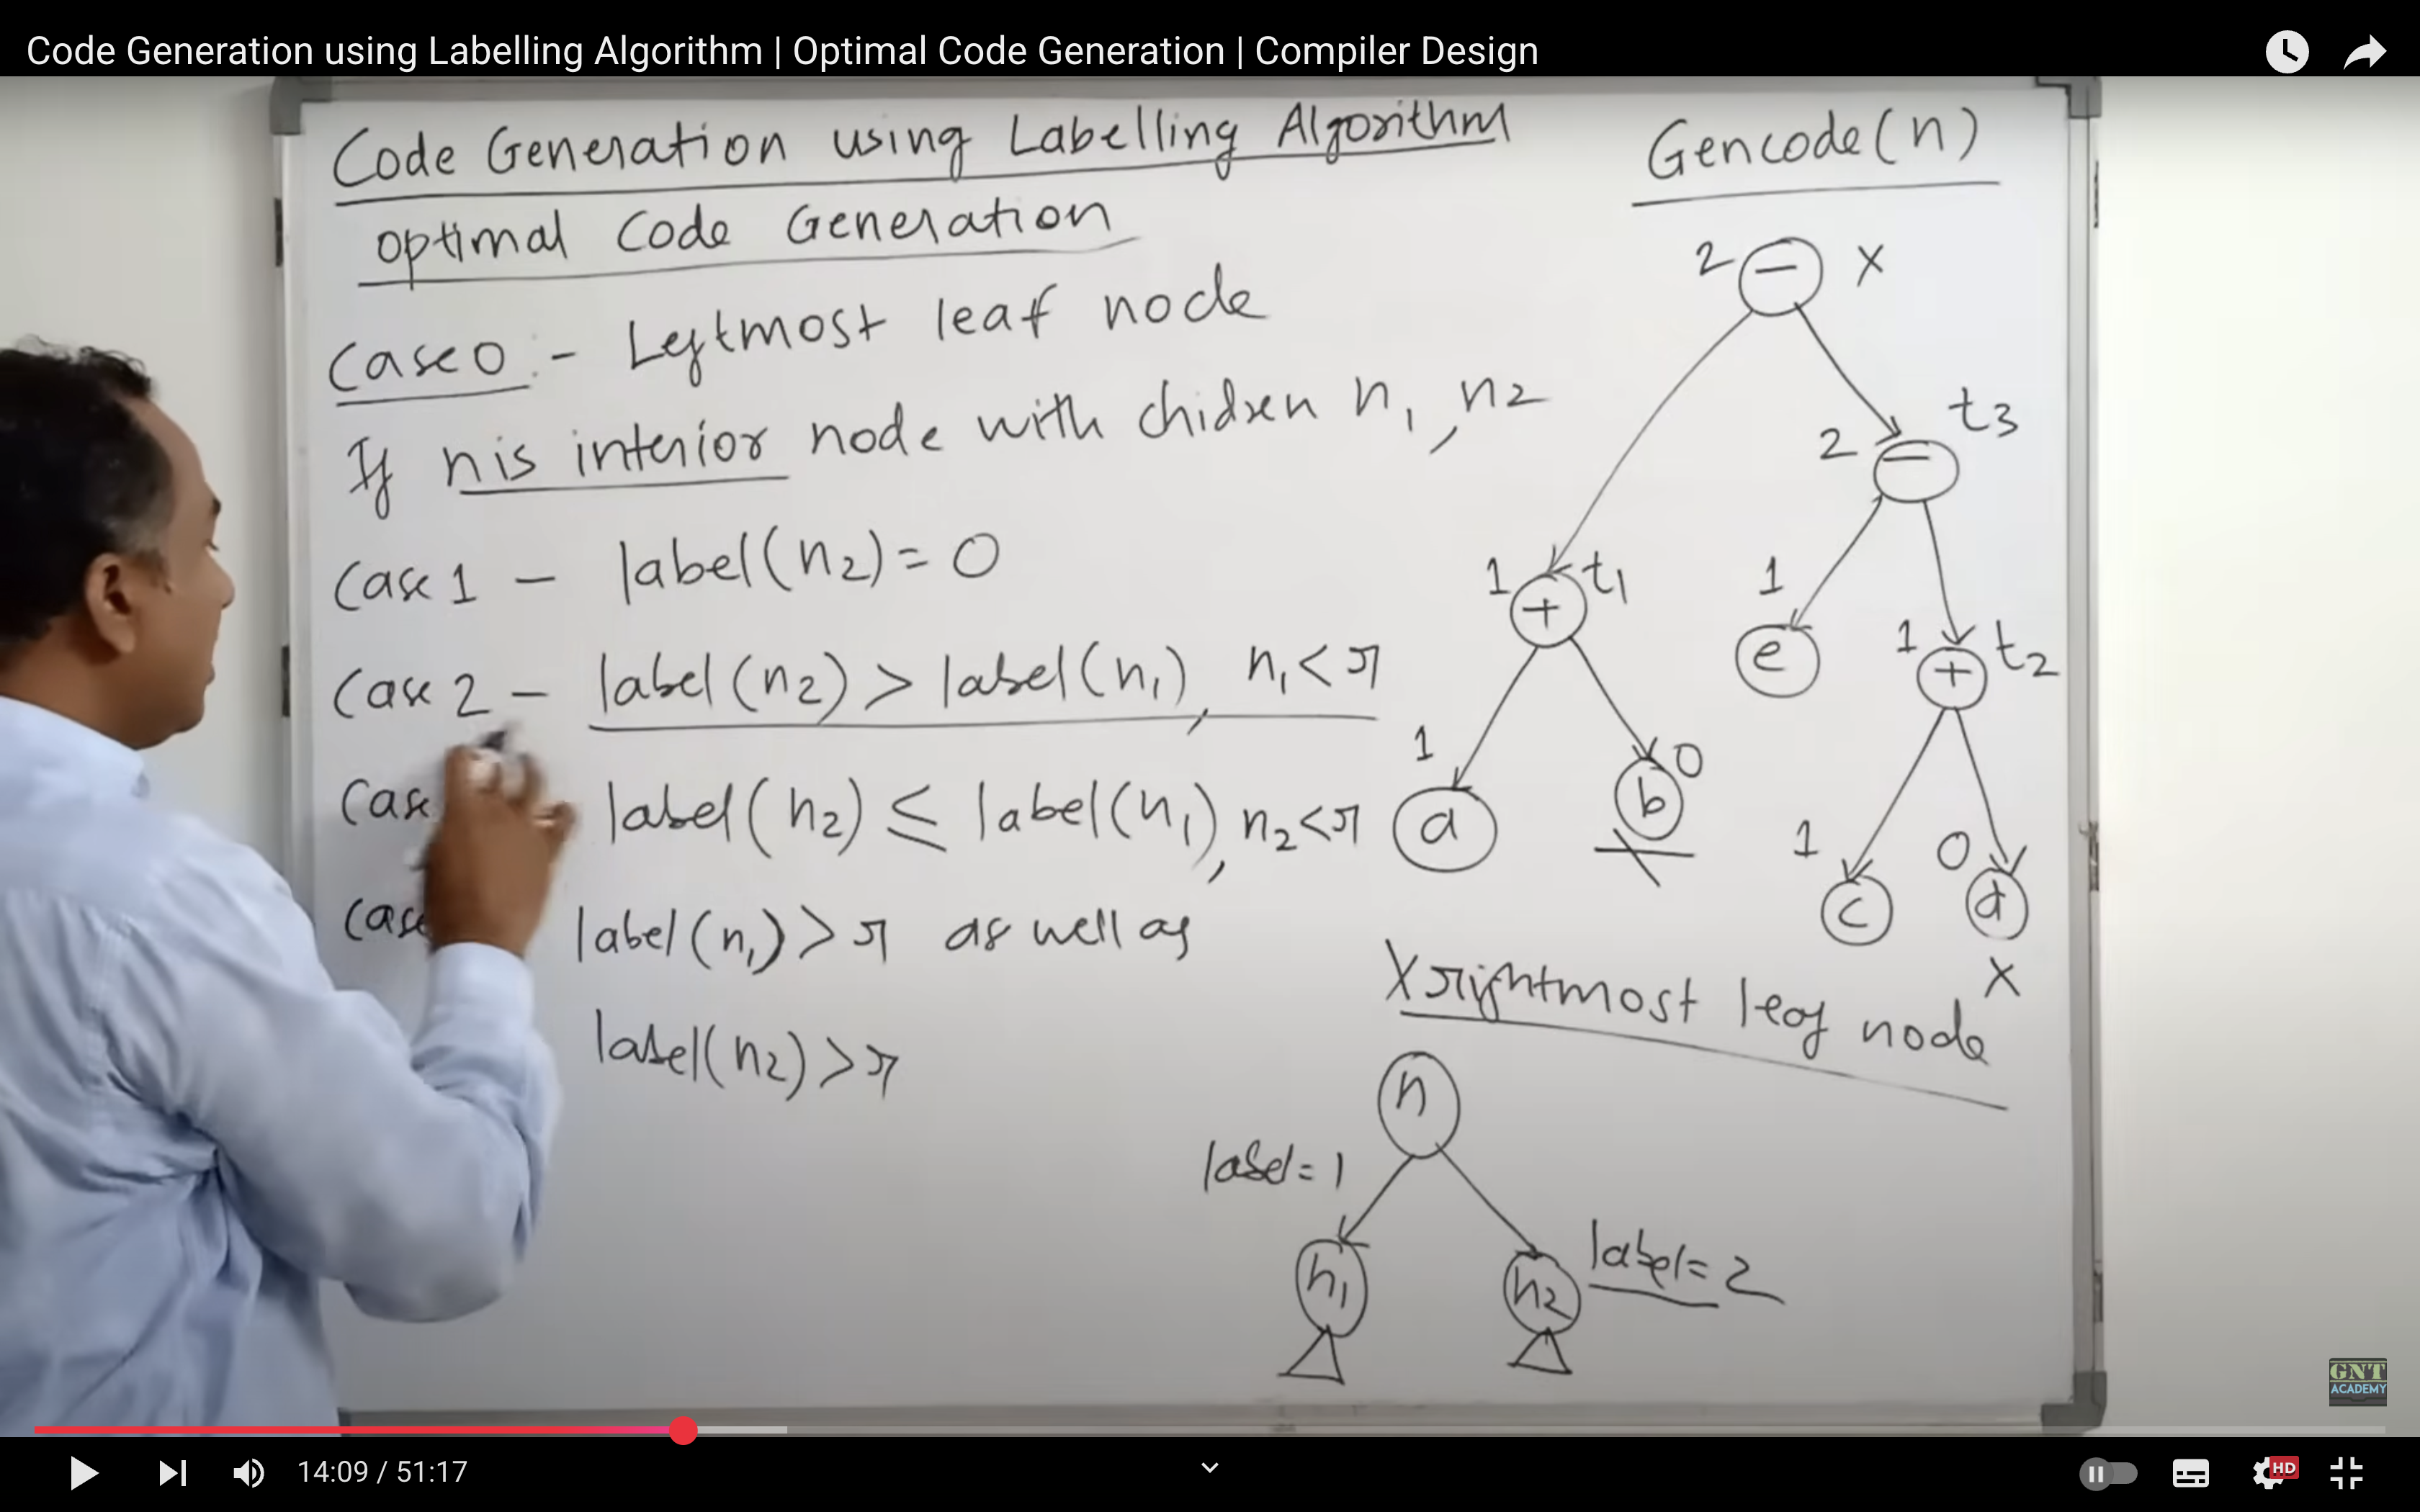 Code Generation using Labelling Algorithm | Optimal Code Generation | Compiler Design
Code Generation using Labelling Algorithm
optimal Code Generation
Case 0 :- Leftmost leaf node
If n is interior node with chidren n1, n2
Case 1 - label(n2) = 0
Case 2 - label(n2) > label(n1), n1 < r
Cas label(n2) ≤ label(n1), n2 < r
Case label(n1) > r as well as
label(n2) > r
Gencode(n)
2 - X
2 - t3
1 + t1
1 e
1 + t2
1 a
0 b
1 c
0 d
X
X rightmost leaf node
n
label = 1
n1
n2 label = 2
GNT
ACADEMY
14:09 / 51:17
HD